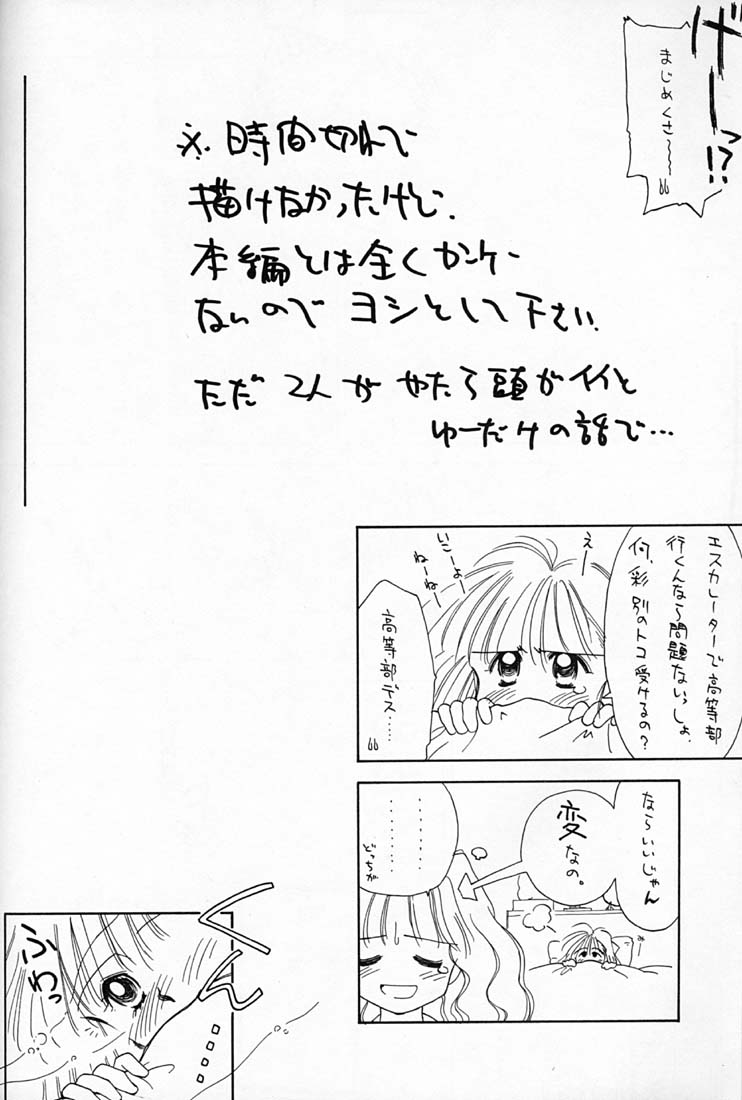 げーっ!?
まじめくさ〜〜〜
※時間切れで
描けなかったけど、
本編とは全くカンケー
ないので ヨシとして下さい.
ただ 2人が やたら頭がイイと
ゆーだけの話で…
エスカレーターで高等部
行くんなら問題ないっしょ.
何、彩 別のトコ受けるの?
えー
いこーよ
ねーねー
高等部デス……
ならいいじゃん
変なの。
………
………
どっちが
み
ふわっ
くん…